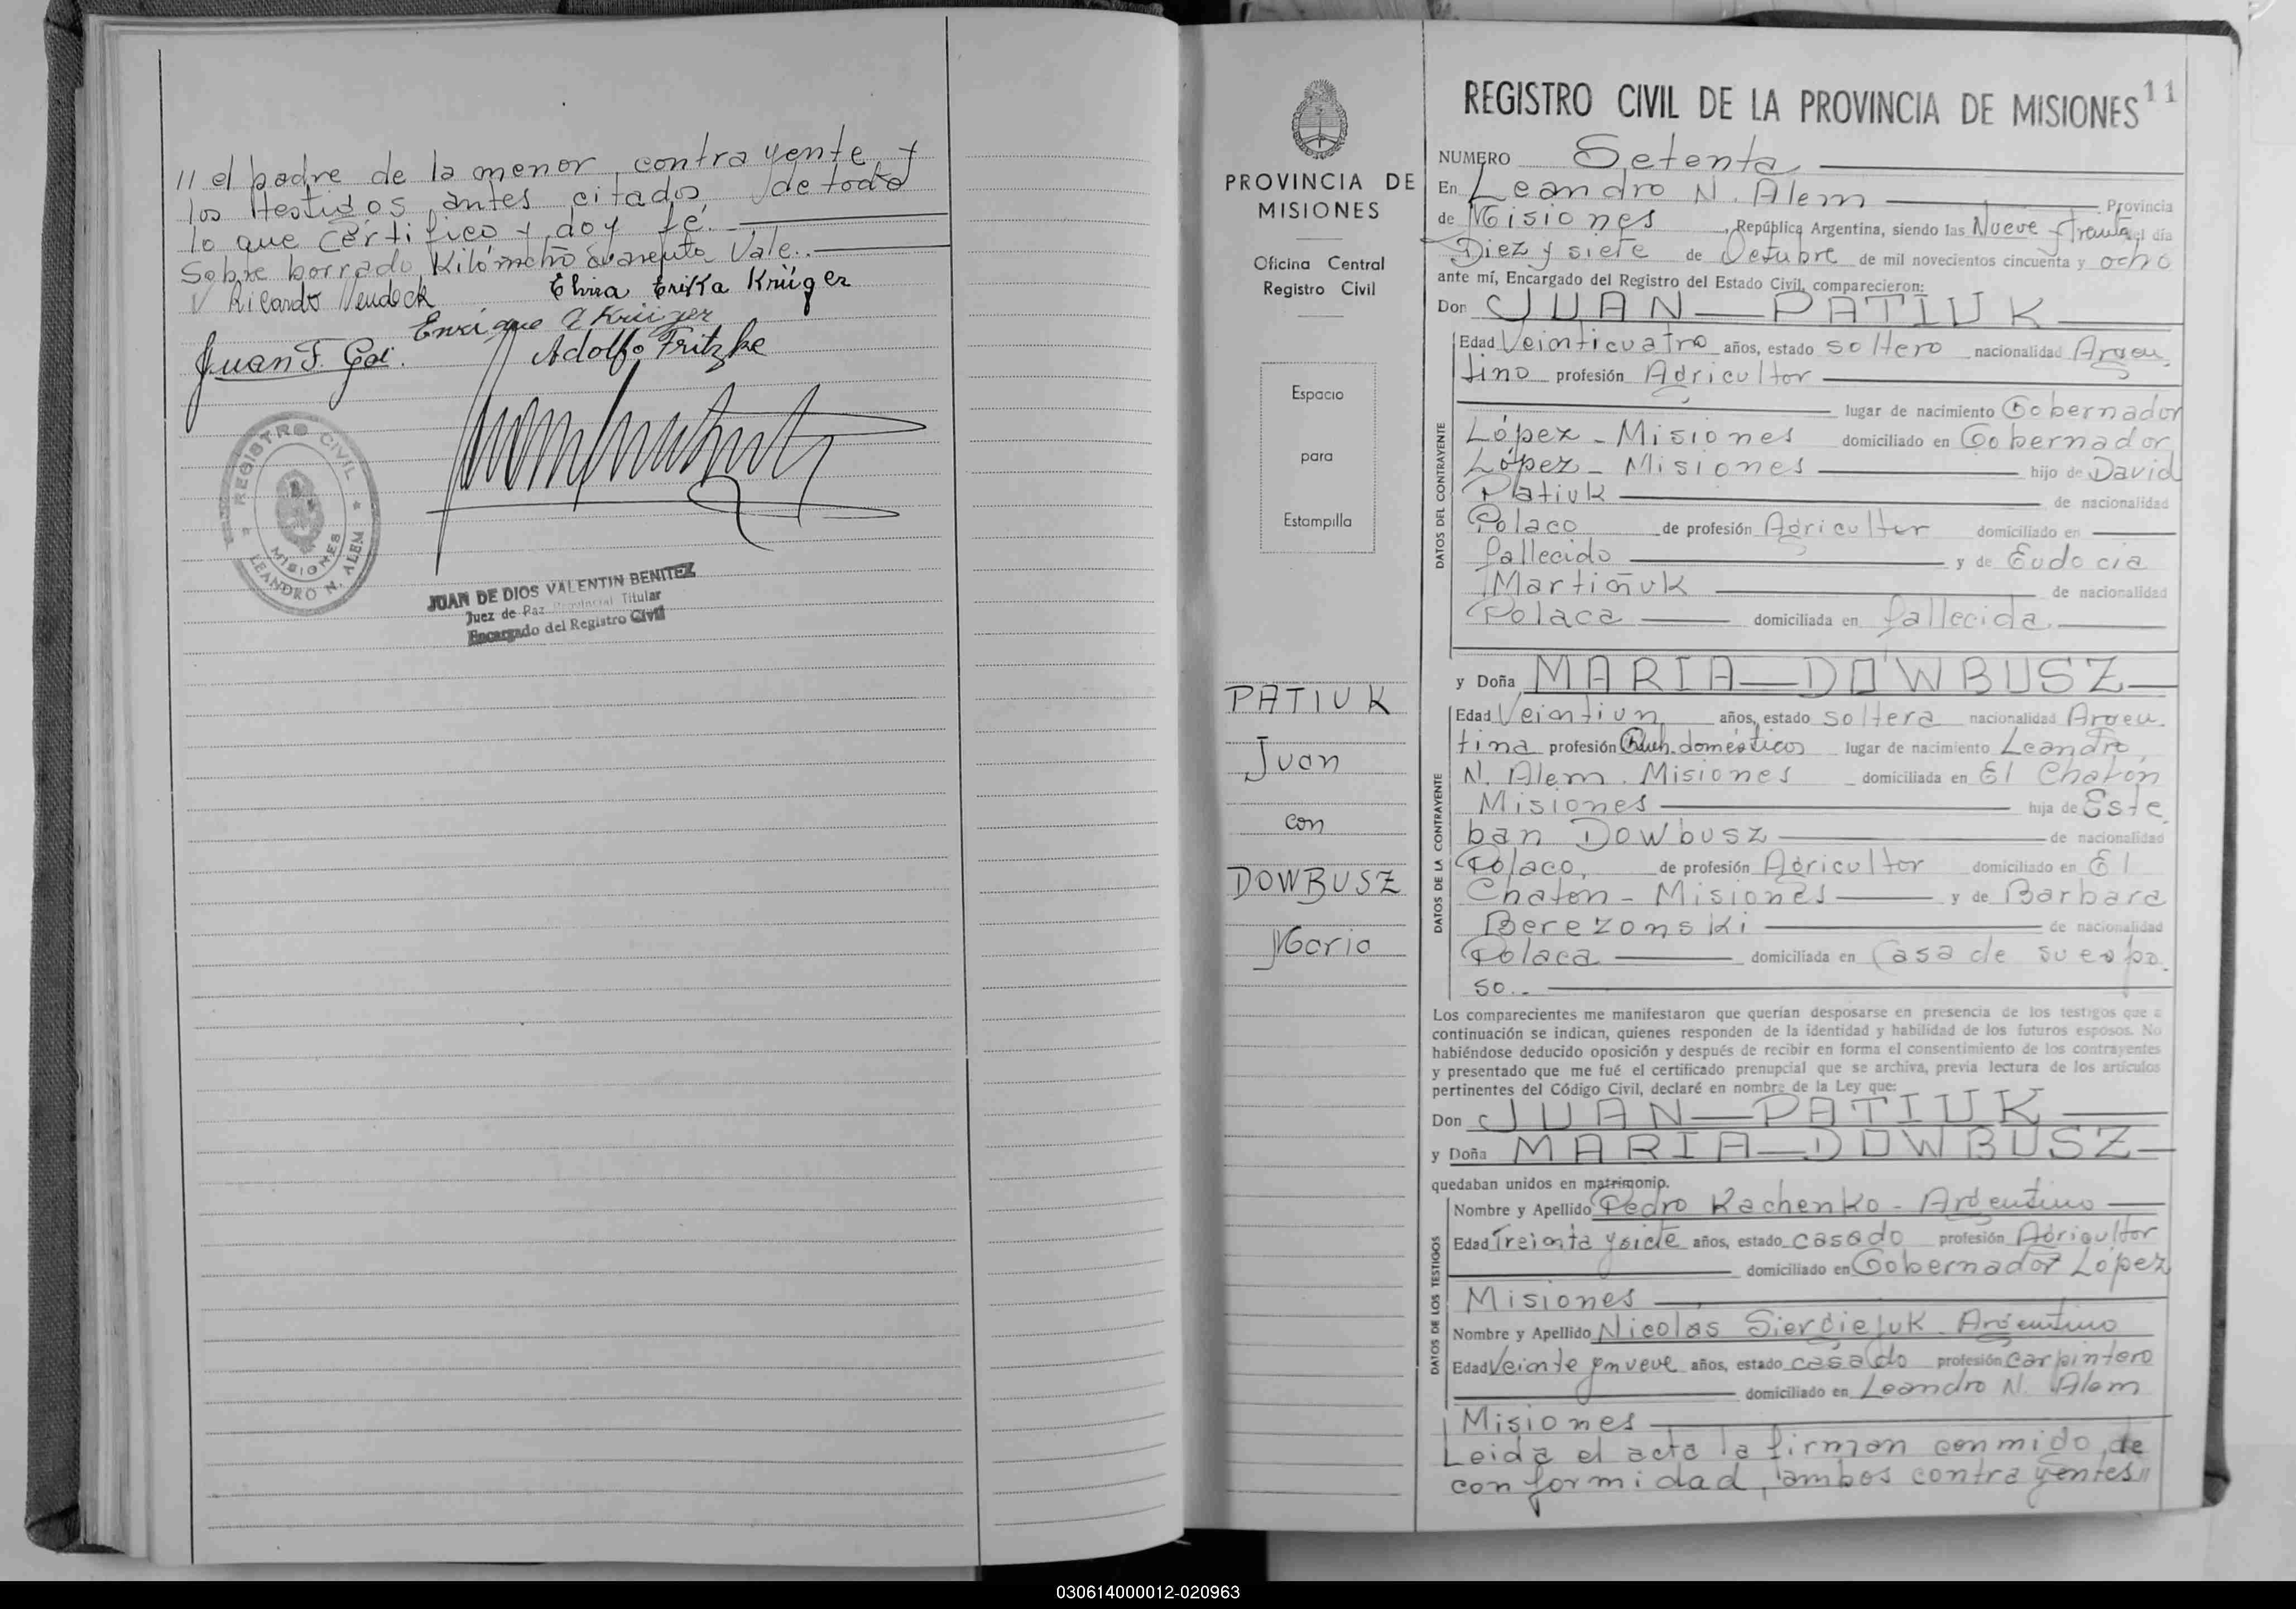 // el padre de la menor contrayente y
los testigos antes citados, de todo
lo que certifico y doy fé.
Sobre borrado Kilómetro cuarenta Vale.
Ricardo Vendock
Elma Erika Krüger
Enrique A Krüger
Juan F. Goi.
Adolfo Fritzke
REGISTRO CIVIL
MISIONES
LEANDRO N. ALEM
JUAN DE DIOS VALENTIN BENITEZ
Juez de Paz Provincial Titular
Encargado del Registro Civil
PROVINCIA DE
MISIONES
Oficina Central
Registro Civil
Espacio
para
Estampilla
PATIUK
Juan
con
DOWBUSZ
Maria
REGISTRO CIVIL DE LA PROVINCIA DE MISIONES 11
NUMERO Setenta
En Leandro N. Alem Provincia
de Misiones, República Argentina, siendo las Nueve y treinta del día
Diez y siete de Octubre de mil novecientos cincuenta y ocho
ante mí, Encargado del Registro del Estado Civil, comparecieron:
Don JUAN PATIUK
DATOS DEL CONTRAYENTE
Edad Veinticuatro años, estado soltero nacionalidad Argen
tino profesión Agricultor
lugar de nacimiento Gobernador
López - Misiones domiciliado en Gobernador
López - Misiones hijo de David
Patiuk de nacionalidad
Polaco de profesión Agricultor domiciliado en
fallecido y de Eudocia
Martiñuk de nacionalidad
Polaca domiciliada en fallecida.
y Doña MARIA DOWBUSZ
DATOS DE LA CONTRAYENTE
Edad Veintiun años, estado soltera nacionalidad Argen
tina profesión Queh. domésticos lugar de nacimiento Leandro
N. Alem. Misiones domiciliada en El Chatón
Misiones hija de Este
ban Dowbusz de nacionalidad
Polaco, de profesión Agricultor domiciliado en El
Chaton - Misiones y de Barbara
Berezonski de nacionalidad
Polaca domiciliada en Casa de su espo
so.-
Los comparecientes me manifestaron que querían desposarse en presencia de los testigos que a
continuación se indican, quienes responden de la identidad y habilidad de los futuros esposos. No
habiéndose deducido oposición y después de recibir en forma el consentimiento de los contrayentes
y presentado que me fué el certificado prenupcial que se archiva, previa lectura de los artículos
pertinentes del Código Civil, declaré en nombre de la Ley que:
Don JUAN PATIUK
y Doña MARIA DOWBUSZ
quedaban unidos en matrimonio.
DATOS DE LOS TESTIGOS
Nombre y Apellido Pedro Kachenko - Argentino
Edad Treinta y siete años, estado casado profesión Agricultor
domiciliado en Gobernador López
Misiones
Nombre y Apellido Nicolás Sierdiejuk. Argentino
Edad Veinte y nueve años, estado casado profesión carpintero
domiciliado en Leandro N. Alem
Misiones
Leida el acta la firman conmido de
conformidad, ambos contrayentes //
030614000012-020963